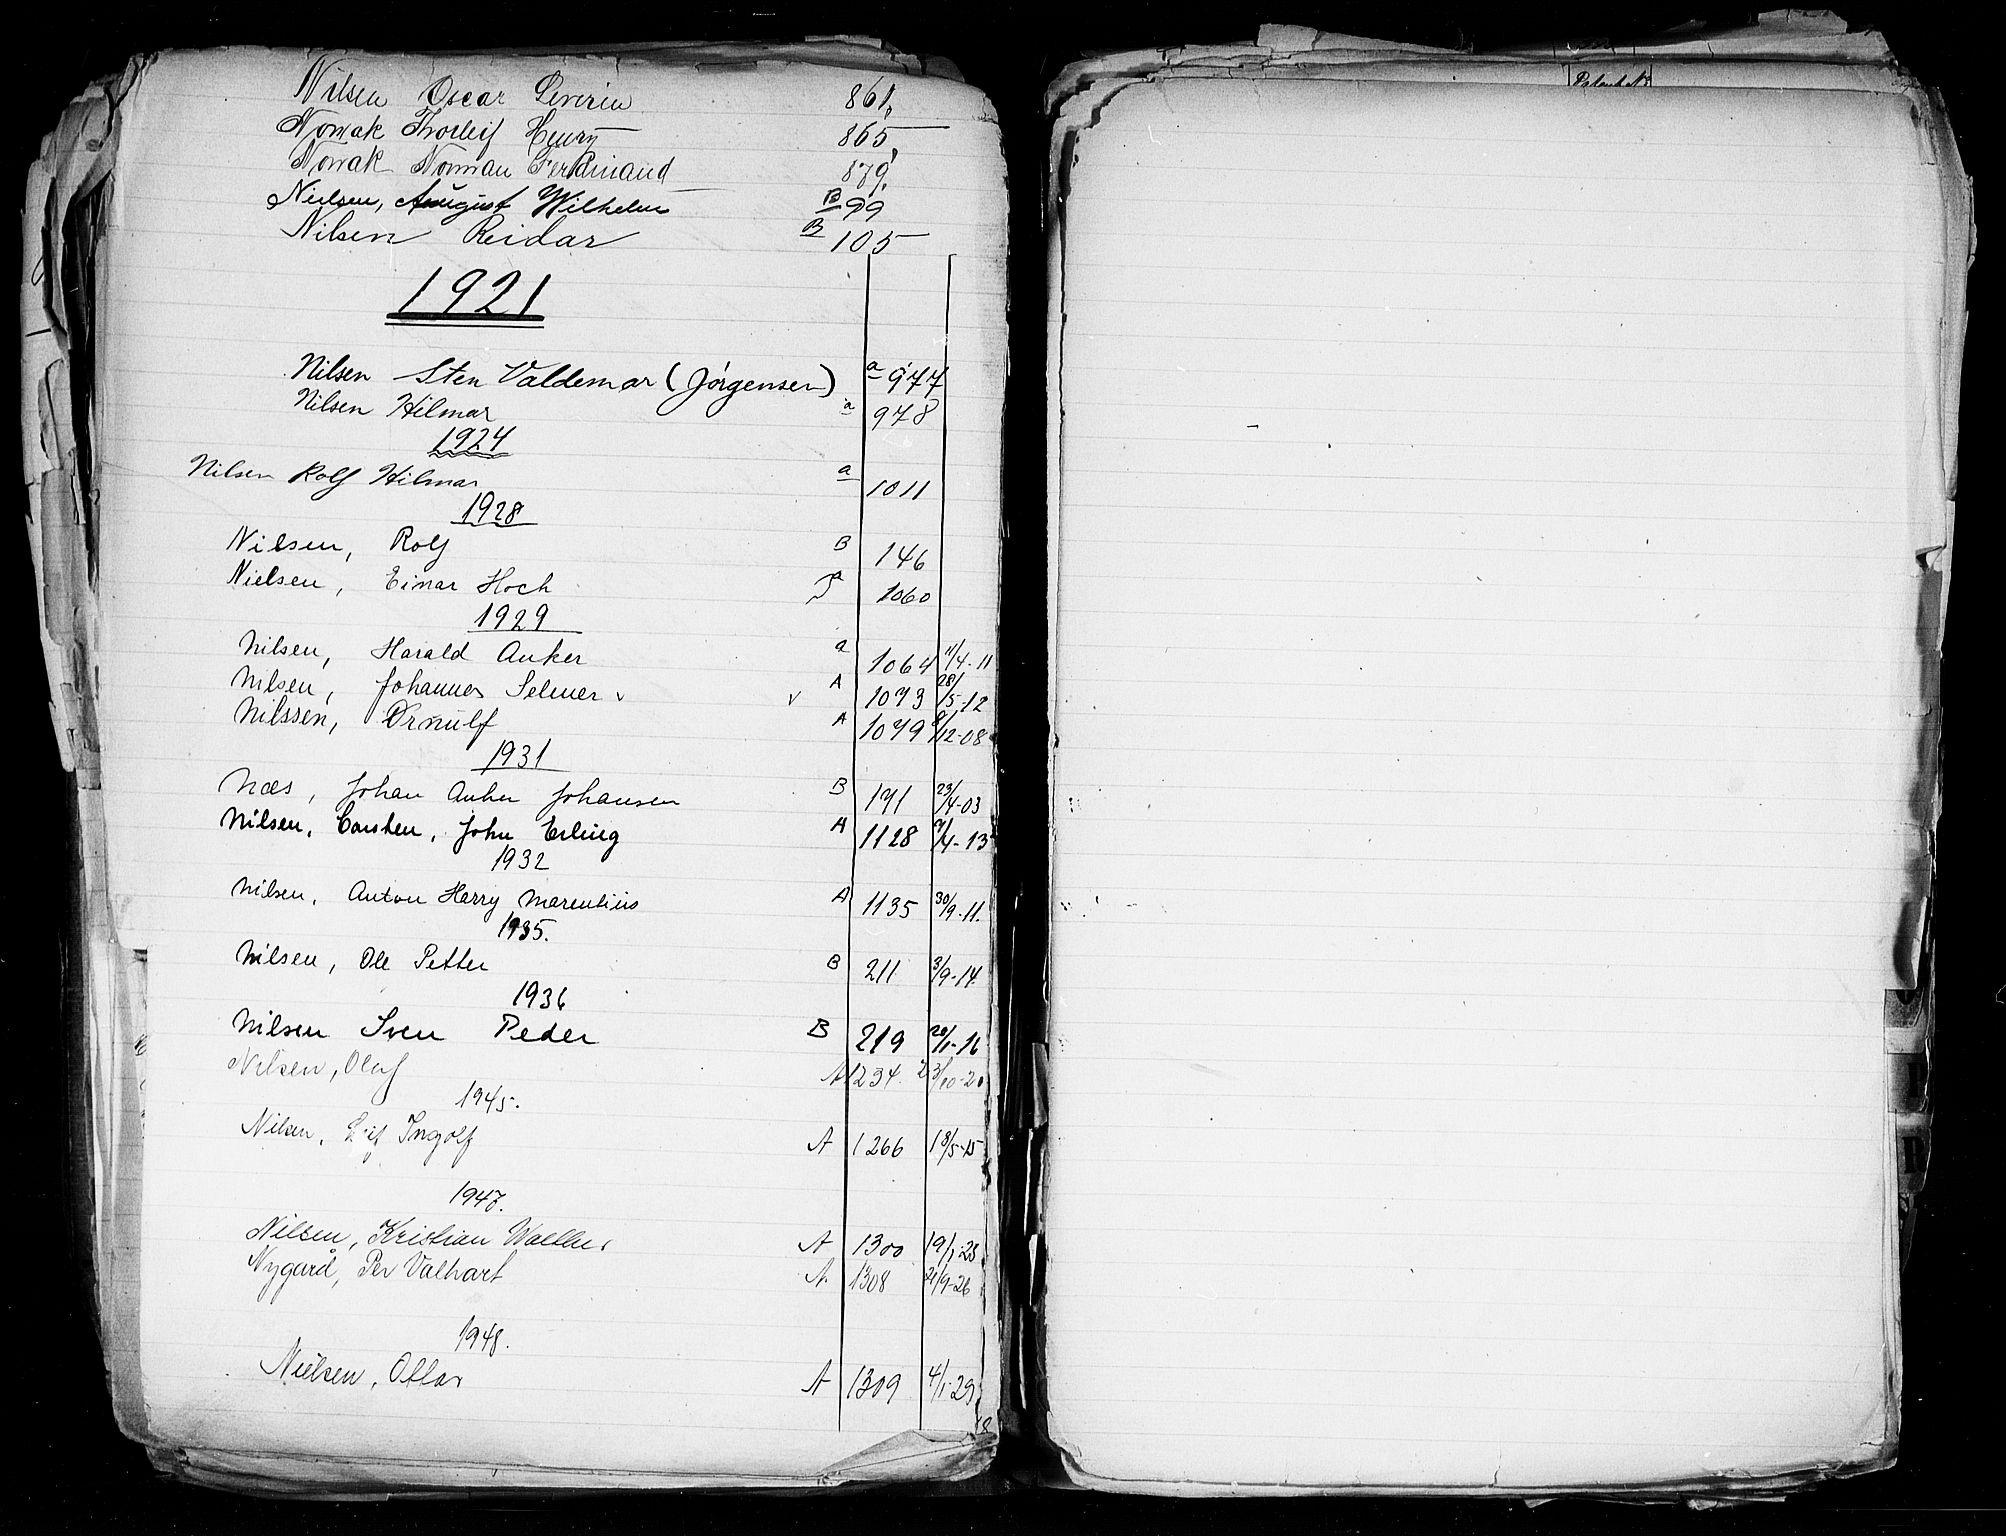 Nilsen Oscar Severin 861
Nowak Thorleif Henry 865
Nowak Norman Ferdinand 879
Nielsen, August Wilhelm B 99
Nilsen Reidar B 105
1921
Nilsen Sten Valdemar (Jørgensen) a 977
Nilsen Hilmar a 978
1924
Nilsen Rolf Hilmar a 1011
1928
Nilsen, Rolf B 146
Nielsen, Einar Hoch a 1060
1929
Nilsen, Harald Anker a 1064 11/4-11
Nilsen, Johannes Selmer v v A 1073 28/5-12
Nilssen, Ørnulf A 1079 8/12-08
1931
Næs, Johan Anker Johansen B 171 23/4-03
Nilsen, Carsten, John Erling A 1128 9/4-13
1932
Nilsen, Anton Harry Marentius A 1135 30/9-11.
1935.
Nilsen, Ole Petter B 211 3/9-14
1936
Nilsen Sven Peder B 219 20/1-16
Nilsen, Olaf A 1234 23/10-20
1945.
Nilsen, Leif Ingolf A 1266 18/5-15
1947.
Nilsen, Kristian A 1300 19/1-23
Nygård, Per Valhart A 1308 21/9-26
1948.
Nielsen, Ottar A 1309 4/1-29